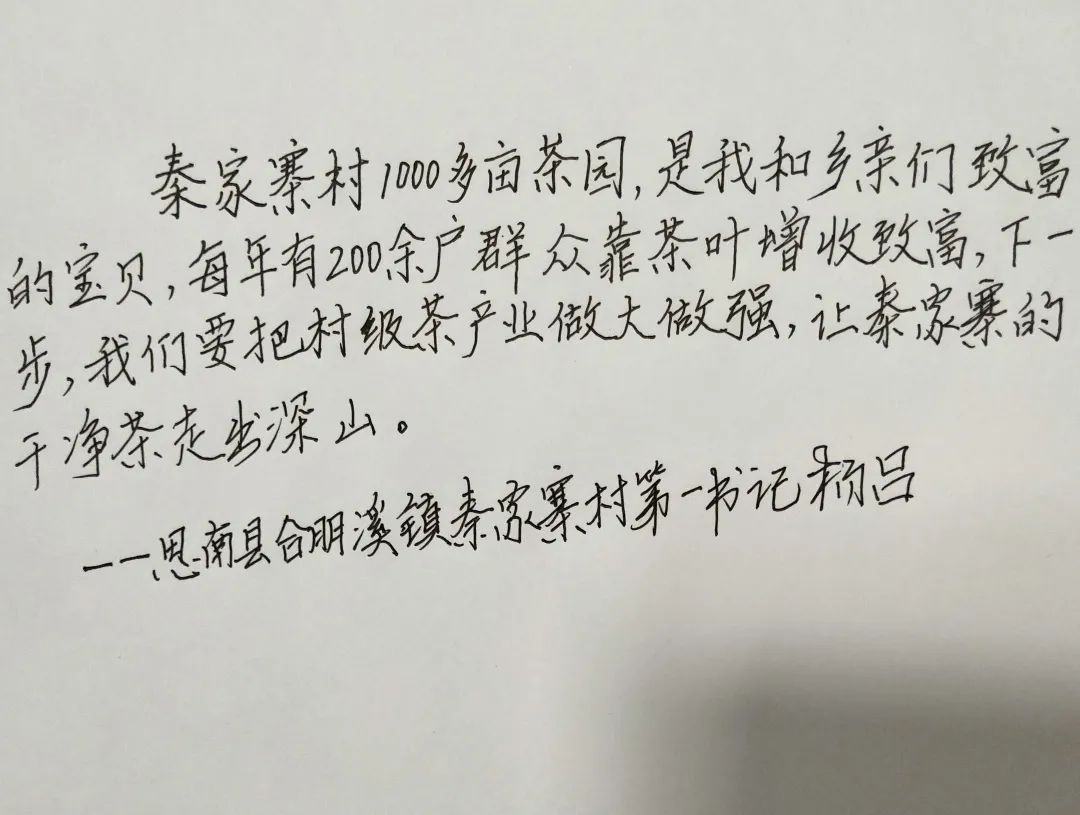 秦家寨村1000多亩茶园,是我和乡亲们致富
的宝贝,每年有200余户群众靠茶叶增收致富,下一
步,我们要把村级茶产业做大做强,让秦家寨的
干净茶走出深山。
——思南县合朋溪镇秦家寨村第一书记杨吕